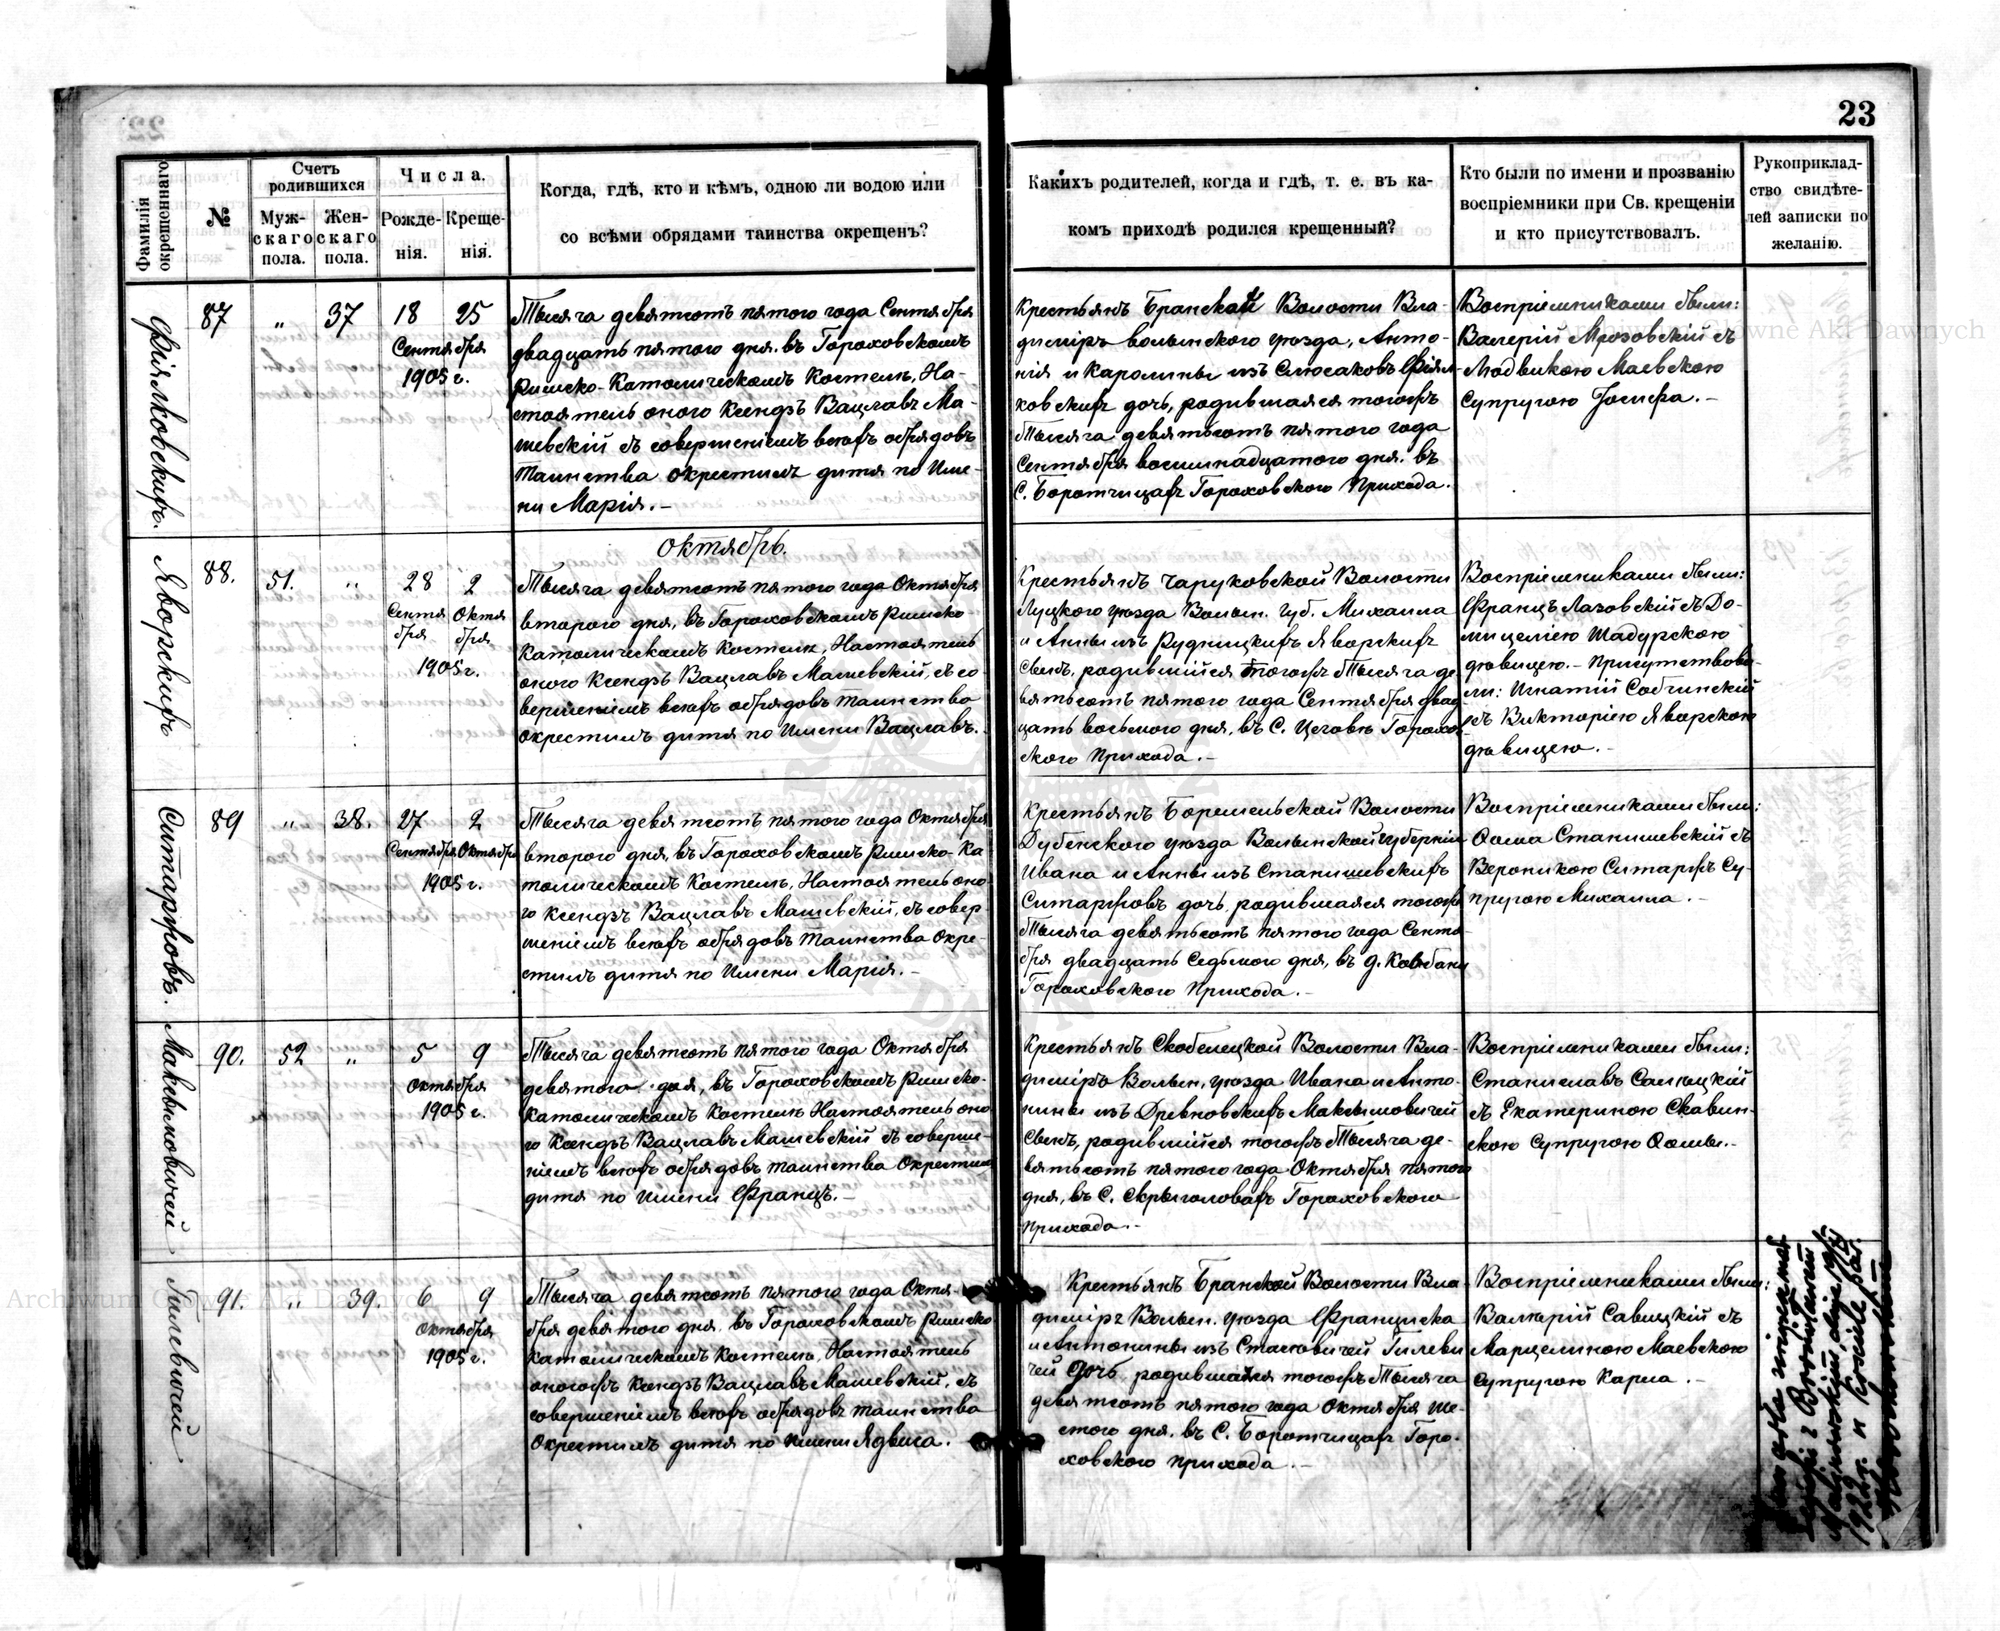 23
Фамилія
окрещеннаго.
№
Счетъ
родившихся
Муж-
скаго
пола.
Жен-
скаго
пола.
Числа.
Рожде-
нія.
Креще-
нія.
Когда, гдѣ, кто и кѣмъ, одною ли водою или
со всѣми обрядами таинства окрещенъ?
Какихъ родителей, когда и гдѣ, т. е. въ ка-
комъ приходѣ родился крещенный?
Кто были по имени и прозванію
воспріемники при Св. крещеніи
и кто присутствовалъ.
Рукоприклад-
ство свидѣте-
лей записки по
желанію.
Фіялковскихъ.
87
"
37
18
25
Сентября
1905 г.
Тысяча девятьсотъ пятого года Сентября
двадцать пятого дня. въ Гороховскомъ
Римско-Католическомъ Костелѣ, На-
стоятель оного Ксендзъ Вацлавъ Ма-
шевскій съ совершеніемъ всехъ обрядовъ
Таинства окрестилъ дитя по Име-
ни Марія.-
Крестьянъ Бранской Волости Вла-
диміръ волынского уѣзда, Анто-
нія и Каролины изъ Слюсаковъ Фіял-
ковскихъ дочь, родившаяся тогожъ
Тысяча девятьсотъ пятого года
Сентября восемнадцатого дня. въ
С. Боротчицахъ Гороховского Прихода.
Воспріемниками были:
Валерій Мрозовскій съ
Людвикою Маевскою
Супругою Іосифа.-
Октябрь.
Яворскихъ
88.
51.
"
28
2
Сентя
бря
Октя
бря
1905 г.
Тысяча девятьсотъ пятого года Октября
второго дня, въ Гороховскомъ Римско-
Католическомъ Костелѣ, Настоятель
оного Ксендзъ Вацлавъ Машевскій, съ со
вершеніемъ всехъ обрядовъ таинства
окрестилъ дитя по Имени Вацлавъ.
Крестьянъ Чаруковской Волости
Луцкого уѣзда Волын. Губ. Михаила
и Анны изъ Рудницкихъ Яворскихъ
Сынъ, родившійся тогожъ Тысяча де-
вятьсотъ пятого года Сентября двад
цать восьмого дня, въ С. Цеговѣ Горохов
ского Прихода.-
Воспріемниками были:
Францъ Лазовскій съ До-
мицеліею Шадурскою
дѣвицею.- Присутствова-
ли: Игнатій Собчинскій
съ Викторіею Яворскою
дѣвицею.-
Ситарфовъ.
89
"
38.
27
2
Сентября
Октября
1905 г.
Тысяча девятьсотъ пятого года Октября
второго дня, въ Гороховскомъ Римско-Ка
толическомъ Костелѣ, Настоятель оно-
го Ксендзъ Вацлавъ Машевскій, съ совер-
шеніемъ всехъ обрядовъ Таинства Окре-
стилъ дитя по Имени Марія.-
Крестьянъ Боремельской Волости
Дубенского уѣзда Волынской губерніи
Ивана и Анны изъ Станишевскихъ
Ситарфовъ дочь, родившаяся тогожъ
Тысяча девятьсотъ пятого года Сентя-
бря двадцать Седьмого дня, въ д. Ковбани
Гороховского Прихода.-
Воспріемниками были:
Ѳома Станишевскій съ
Вероникою Ситарфъ Су-
пругою Михаила.-
Максымовичей
90.
52
"
5
9
Октября
1905 г.
Тысяча девятьсотъ пятого года Октября
девятого дня, въ Гороховскомъ Римско-
Католическомъ Костелѣ Настоятель оно
го Ксендзъ Вацлавъ Машевскій съ соверше-
ніемъ всехъ обрядовъ таинства Окрестилъ
дитя по имени Францъ.-
Крестьянъ Скобелецкой Волости Вла-
диміръ Волын, уѣзда Ивана и Анто-
нины изъ Древновскихъ Максымовичей
Сынъ, родившійся тогожъ Тысяча де-
вятьсотъ пятого года Октября пятого
дня, въ С. Скрыголовахъ Гороховского
Прихода.-
Воспріемниками были:
Станиславъ Салюцкій
съ Екатериною Скавин-
скою Супругою Ѳомы.-
Гилевичей
91.
"
39.
6
9
Октября
1905 г.
Тысяча девятьсотъ пятого года Октя-
бря девятого дня. въ Гороховскомъ Римско
Католическомъ Костелѣ, Настоятель
оногожъ Ксендзъ Вацлавъ Машевскій, съ
совершеніемъ всехъ обрядовъ таинства
Окрестилъ дитя по имени Ядвига.
Крестьянъ Бранской Волости Вла-
диміръ Волын. уѣзда Франциска
и Антонины изъ Стасевичей Гилеви
чей Дочь родившаяся тогожъ Тысяча
девятьсотъ пятого года Октября Ше-
стого дня. въ С. Боротчицахъ Горо-
ховского прихода.-
Воспріемниками были:
Валерій Савицкій съ
Марцелиною Маевскою
Супругою Карла.-
1922 r. w kościele par.
Archiwum Główne Akt Dawnych